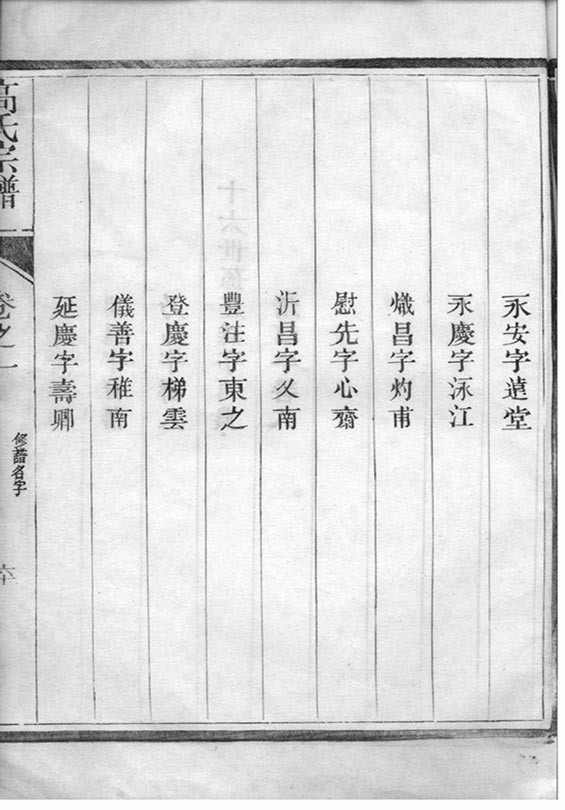 永安字蓮堂
永慶字泳江
熾昌字灼甫
慰先字心齋
沂昌字乂南
豐注字東之
登慶字梯雲
儀善字稚南
延慶字壽卿
高氏宗譜
卷之一
修譜名字